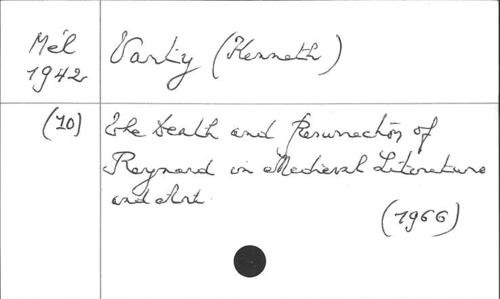 Mél
1942
Varty (Kenneth)
(10)
The Death and Resurrection of
Reynard in Medieval Literature
and Art
(1966)